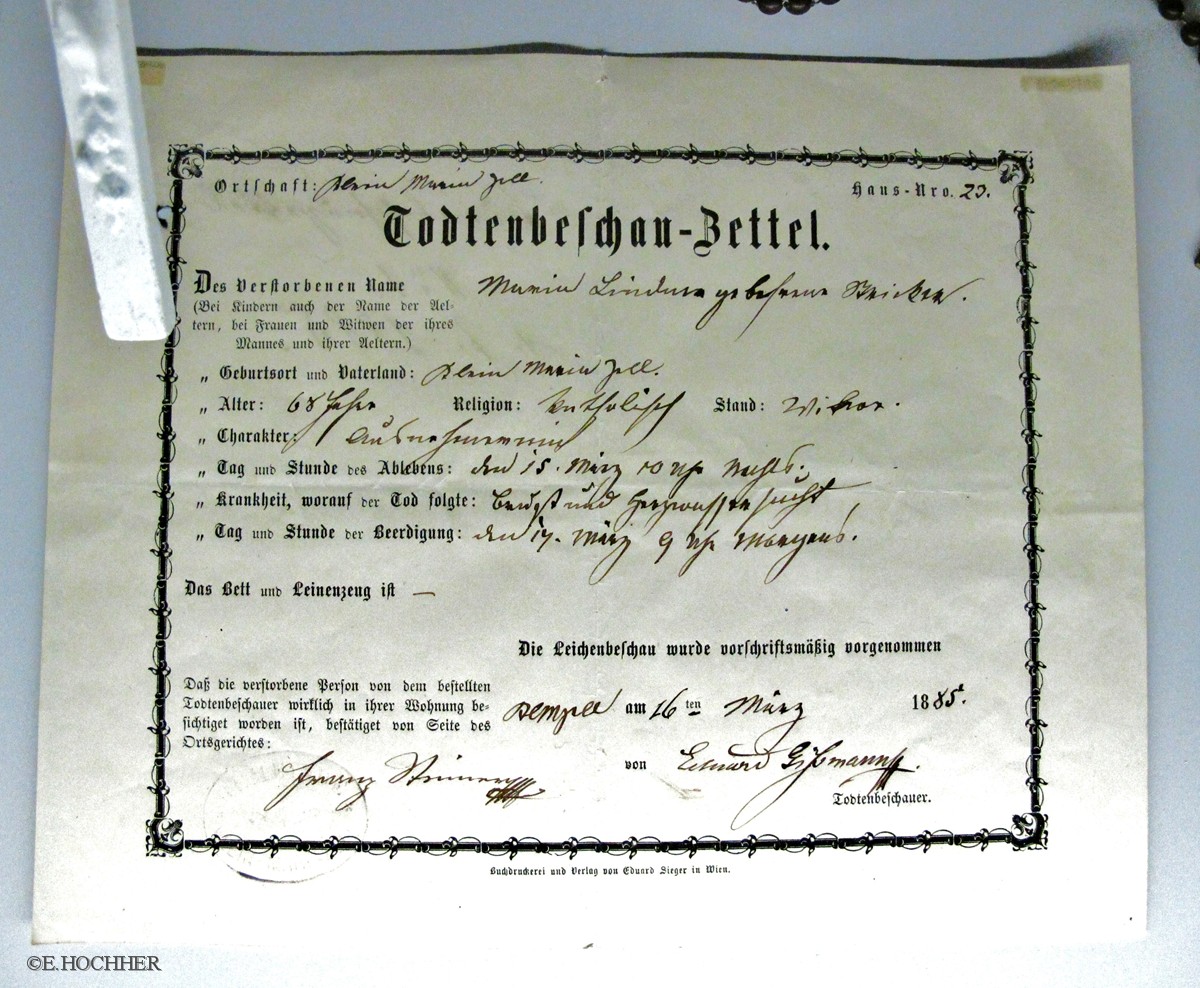 Ortschaft: Klein Maria Zell. Haus-Nro. 23.
Todtenbeschau-Zettel.
Des Verstorbenen Name Maria Lindner gebohrene
(Bei Kindern auch der Name der Ael-
tern, bei Frauen und Witwen der ihres
Mannes und ihrer Aeltern.)
„ Geburtsort und Vaterland: Klein Maria Zell.
„ Alter: 68 Jahre Religion: Katholisch Stand:
„ Charakter: Ausnehmerin
„ Tag und Stunde des Ablebens: den 15. März 10 Uhr Nachts.
„ Krankheit, worauf der Tod folgte: Brust und Herzwassersucht,
„ Tag und Stunde der Beerdigung: den 17. März 9 Uhr Morgens.
Das Bett und Leinenzeug ist —
Die Leichenbeschau wurde vorschriftsmäßig vorgenommen
Daß die verstorbene Person von dem bestellten
Todtenbeschauer wirklich in ihrer Wohnung be-
sichtiget worden ist, bestätiget von Seite des
Ortsgerichtes:
Klmzell am 16ten März 1885.
Franz Steiner
von Eduard
Todtenbeschauer.
Buchdruckerei und Verlag von Eduard Sieger in Wien.
©E.HOCHHER